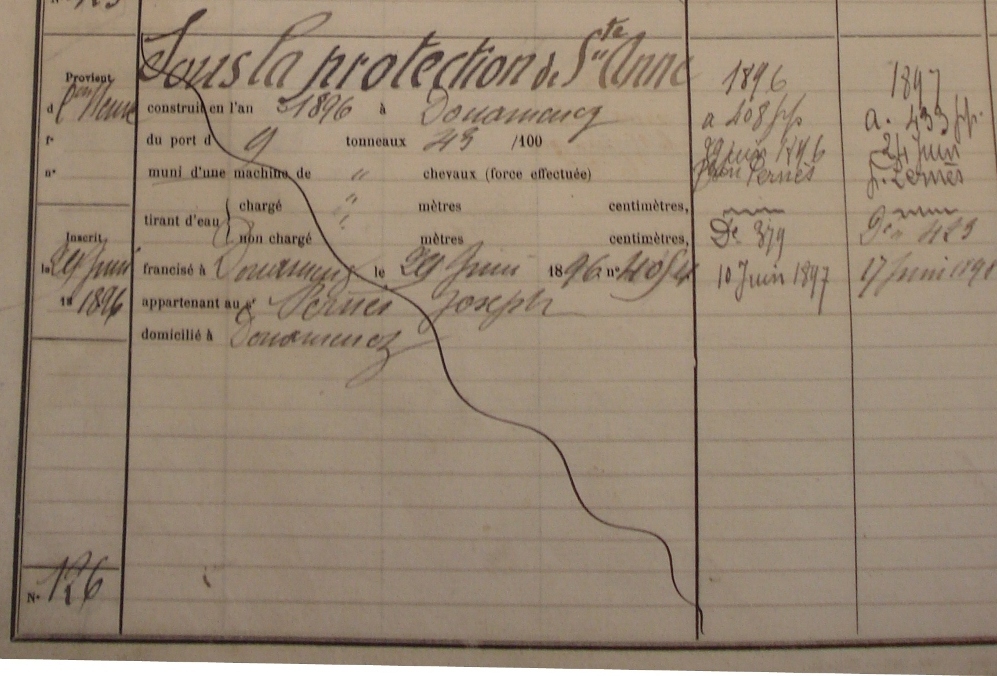 Sous la protection de Ste Anne
Provient
d
construit en l'an 1896 à Douarnenez
fo
du port d 9 tonneaux 43 /100
no
muni d'une machine de " chevaux (force effectuée)
tirant d'eau { chargé " mètres centimètres,
non chargé " mètres centimètres,
Inscrit
le 29 Juin
18 1896
francisé à Douarnenez le 29 Juin 1896 no
appartenant au sr Pernès Joseph
domicilié à Douarnenez
No 126
1896
a 408
29 juin 1896
Pernès
De 379
10 Juin 1897
1897
a. 433
24 Juin
J. Pernès
423
17 Juin